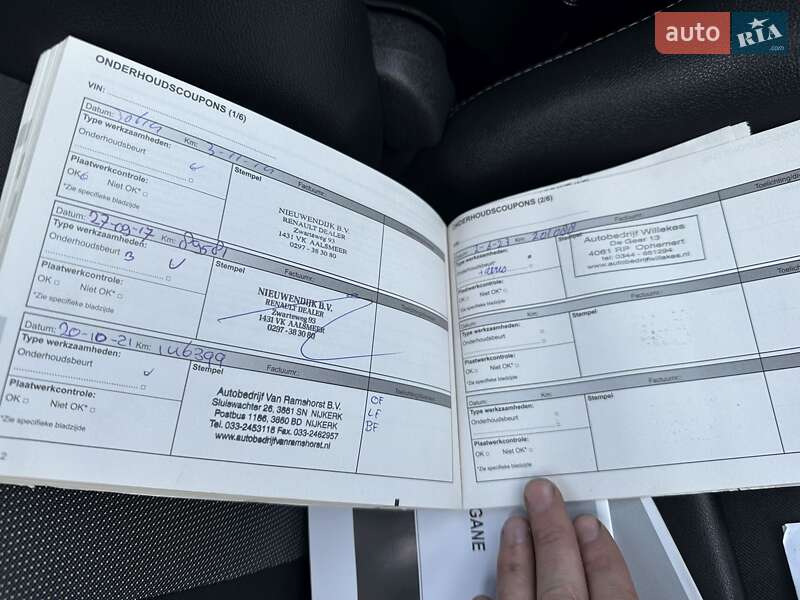 auto RIA .com
ONDERHOUDSCOUPONS (1/6)
VIN:
Datum: Km: 3-11-14
Type werkzaamheden:
Onderhoudsbeurt
Plaatwerkcontrole:
OK Niet OK*
*Zie specifieke bladzijde
Stempel Factuurnr.:
NIEUWENDIJK B.V.
RENAULT DEALER
Zwarteweg 93
1431 VK AALSMEER
0297 - 38 30 80
Datum: 27-09-17 Km: 89581
Type werkzaamheden:
Onderhoudsbeurt B
Plaatwerkcontrole:
OK Niet OK*
*Zie specifieke bladzijde
Stempel Factuurnr.:
NIEUWENDIJK B.V.
RENAULT DEALER
Zwarteweg 93
1431 VK AALSMEER
0297 - 38 30 80
Datum: 20-10-21 Km: 146399
Type werkzaamheden:
Onderhoudsbeurt
Plaatwerkcontrole:
OK Niet OK*
*Zie specifieke bladzijde
Stempel Factuurnr.:
Autobedrijf Van Ramshorst B.V.
Sluiswachter 26, 3861 SN NIJKERK
Postbus 1186, 3860 BD NIJKERK
Tel. 033-2453116 Fax. 033-2462957
www.autobedrijfvanramshorst.nl
OF
LF
BF
2
ONDERHOUDSCOUPONS (2/6)
VIN
Datum: Km:
Type werkzaamheden:
Onderhoudsbeurt
Plaatwerkcontrole:
OK Niet OK*
*Zie specifieke bladzijde
Stempel Factuurnr.:
Autobedrijf Willekes
De Geer 13
4061 RP Ophemert
tel: 0344 - 651294
www.autobedrijfwillekes.nl
Datum: Km:
Type werkzaamheden:
Onderhoudsbeurt
Plaatwerkcontrole:
OK Niet OK*
*Zie specifieke bladzijde
Stempel Factuurnr.:
Datum: Km:
Type werkzaamheden:
Onderhoudsbeurt
Plaatwerkcontrole:
OK Niet OK*
*Zie specifieke bladzijde
Stempel Factuurnr.:
GANE